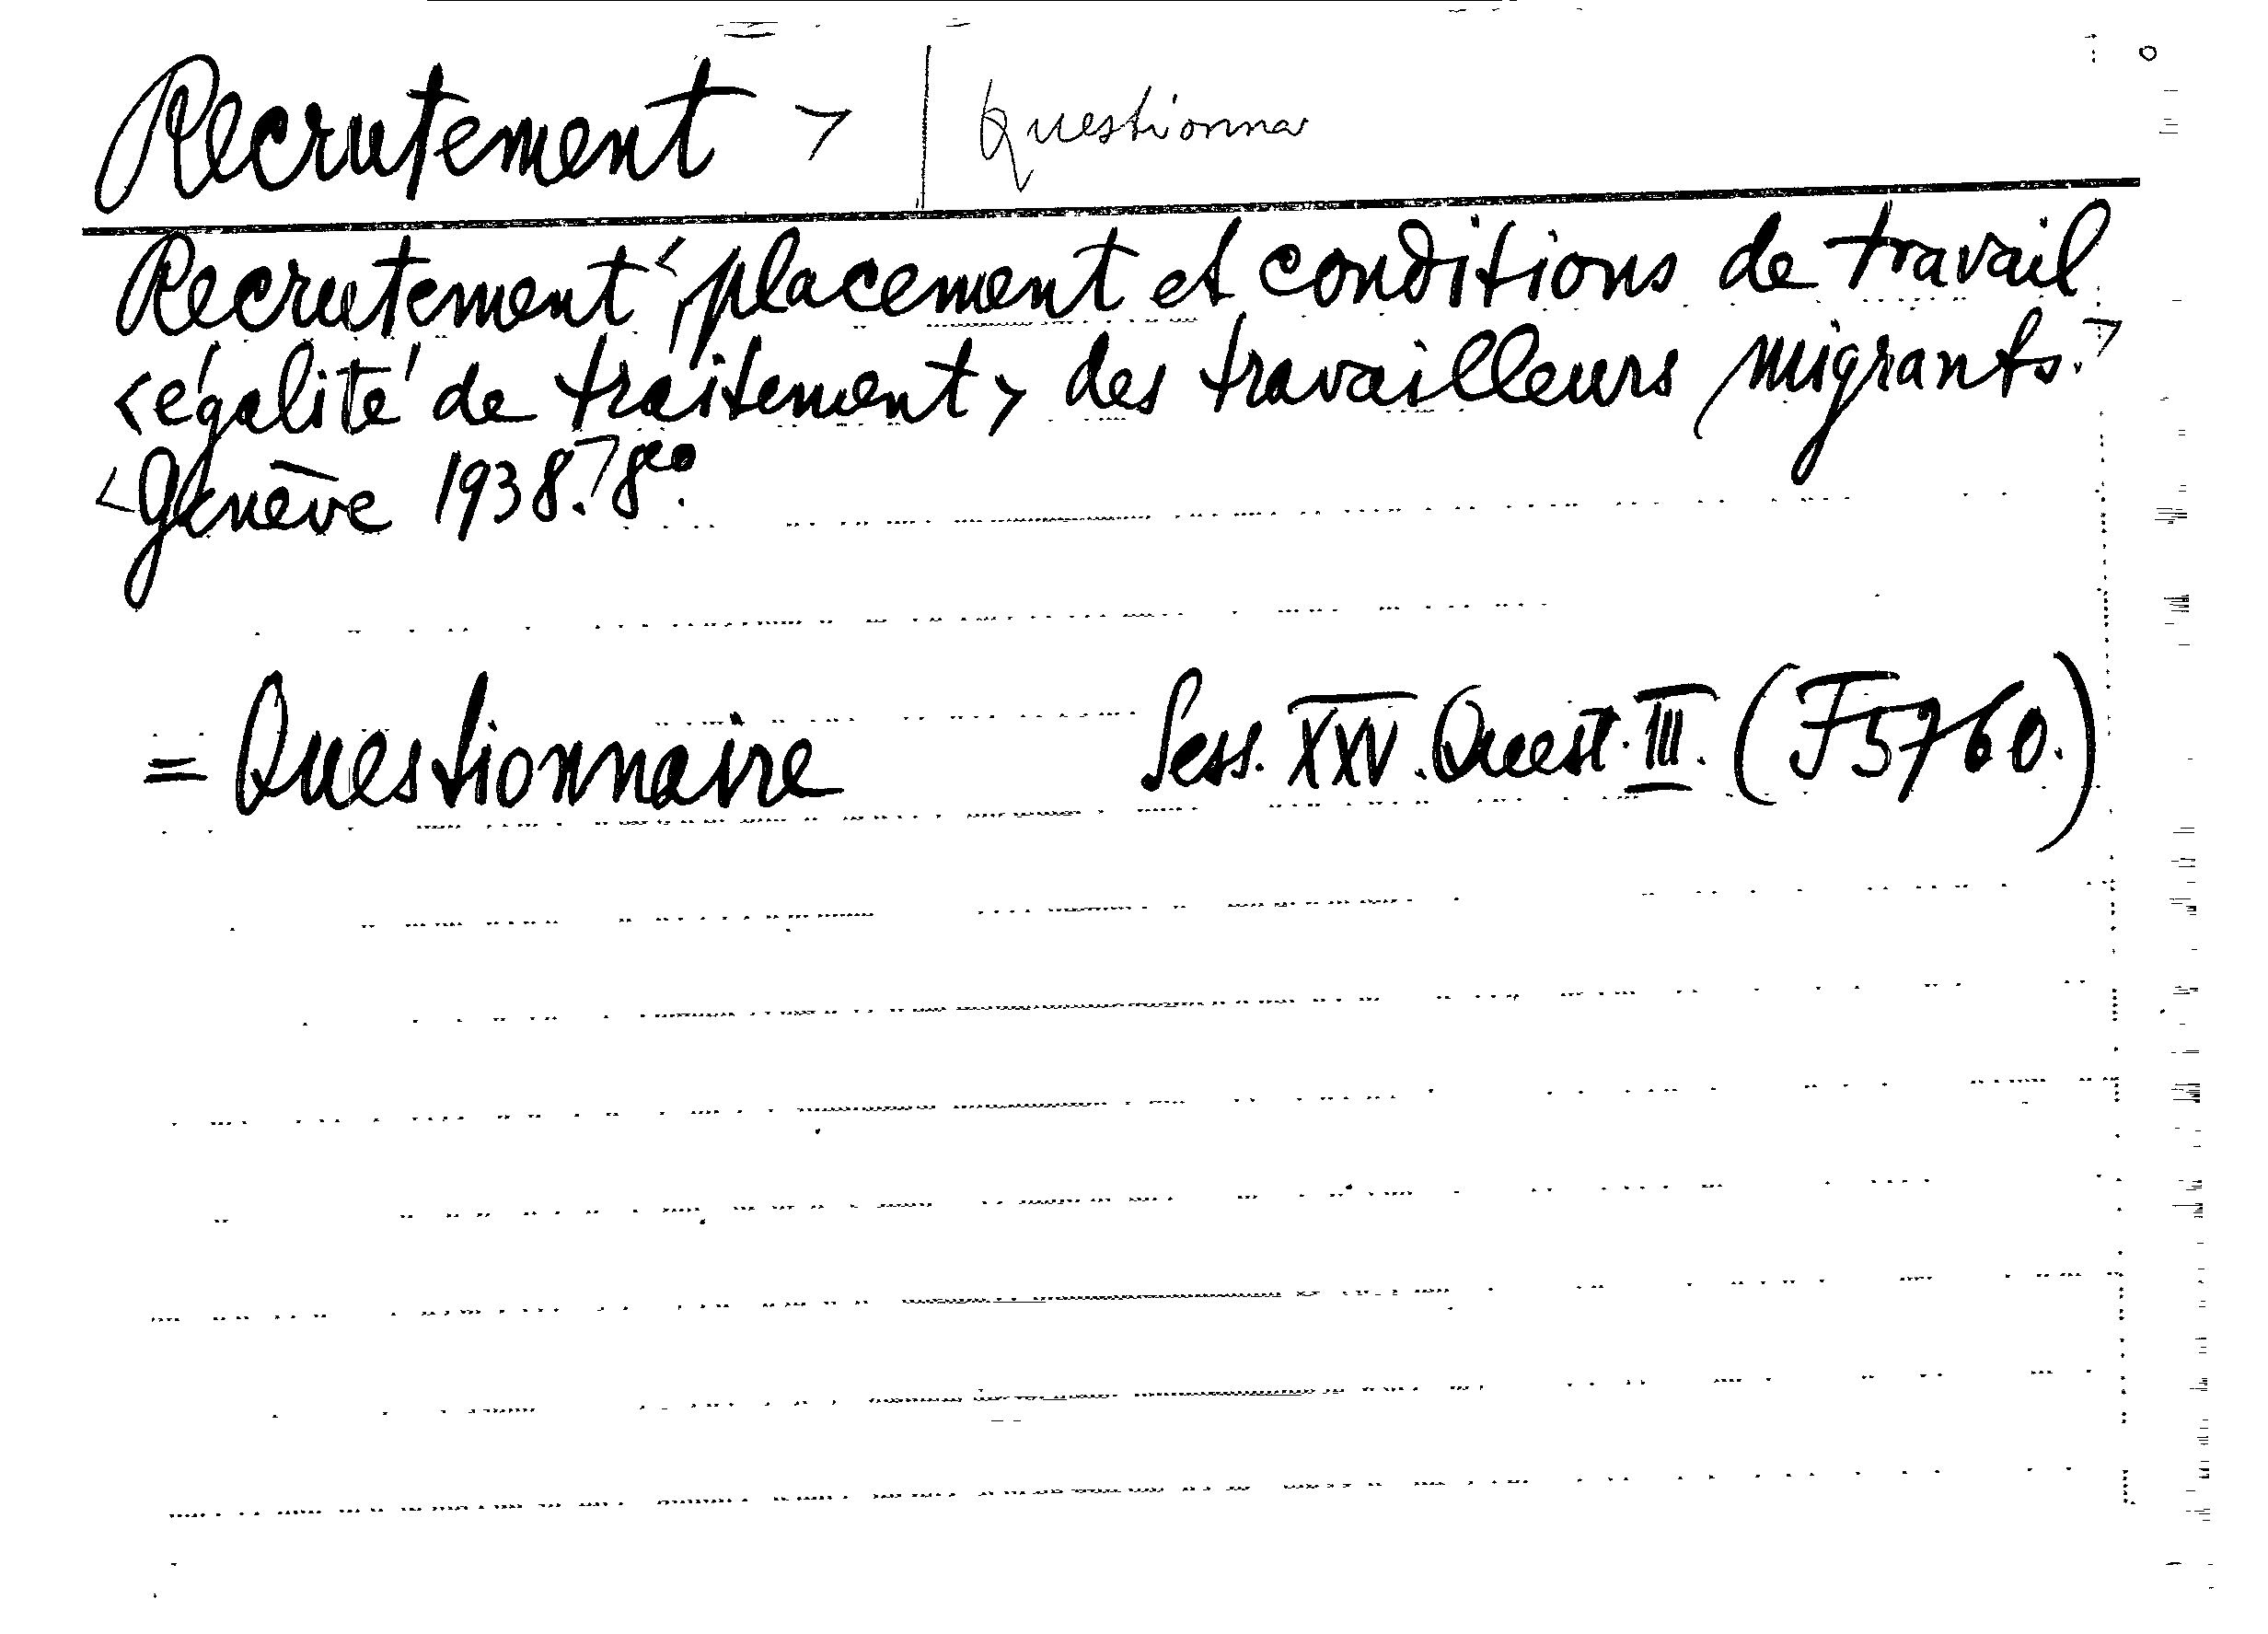 Recrutement > | Questionna
Recrutement <, placement et conditions de travail
<égalité de traitement> des travailleurs migrants.>
<Genève 1938.> 8°.
= Questionnaire Sess. XXV. Quest. III. (F5760.)